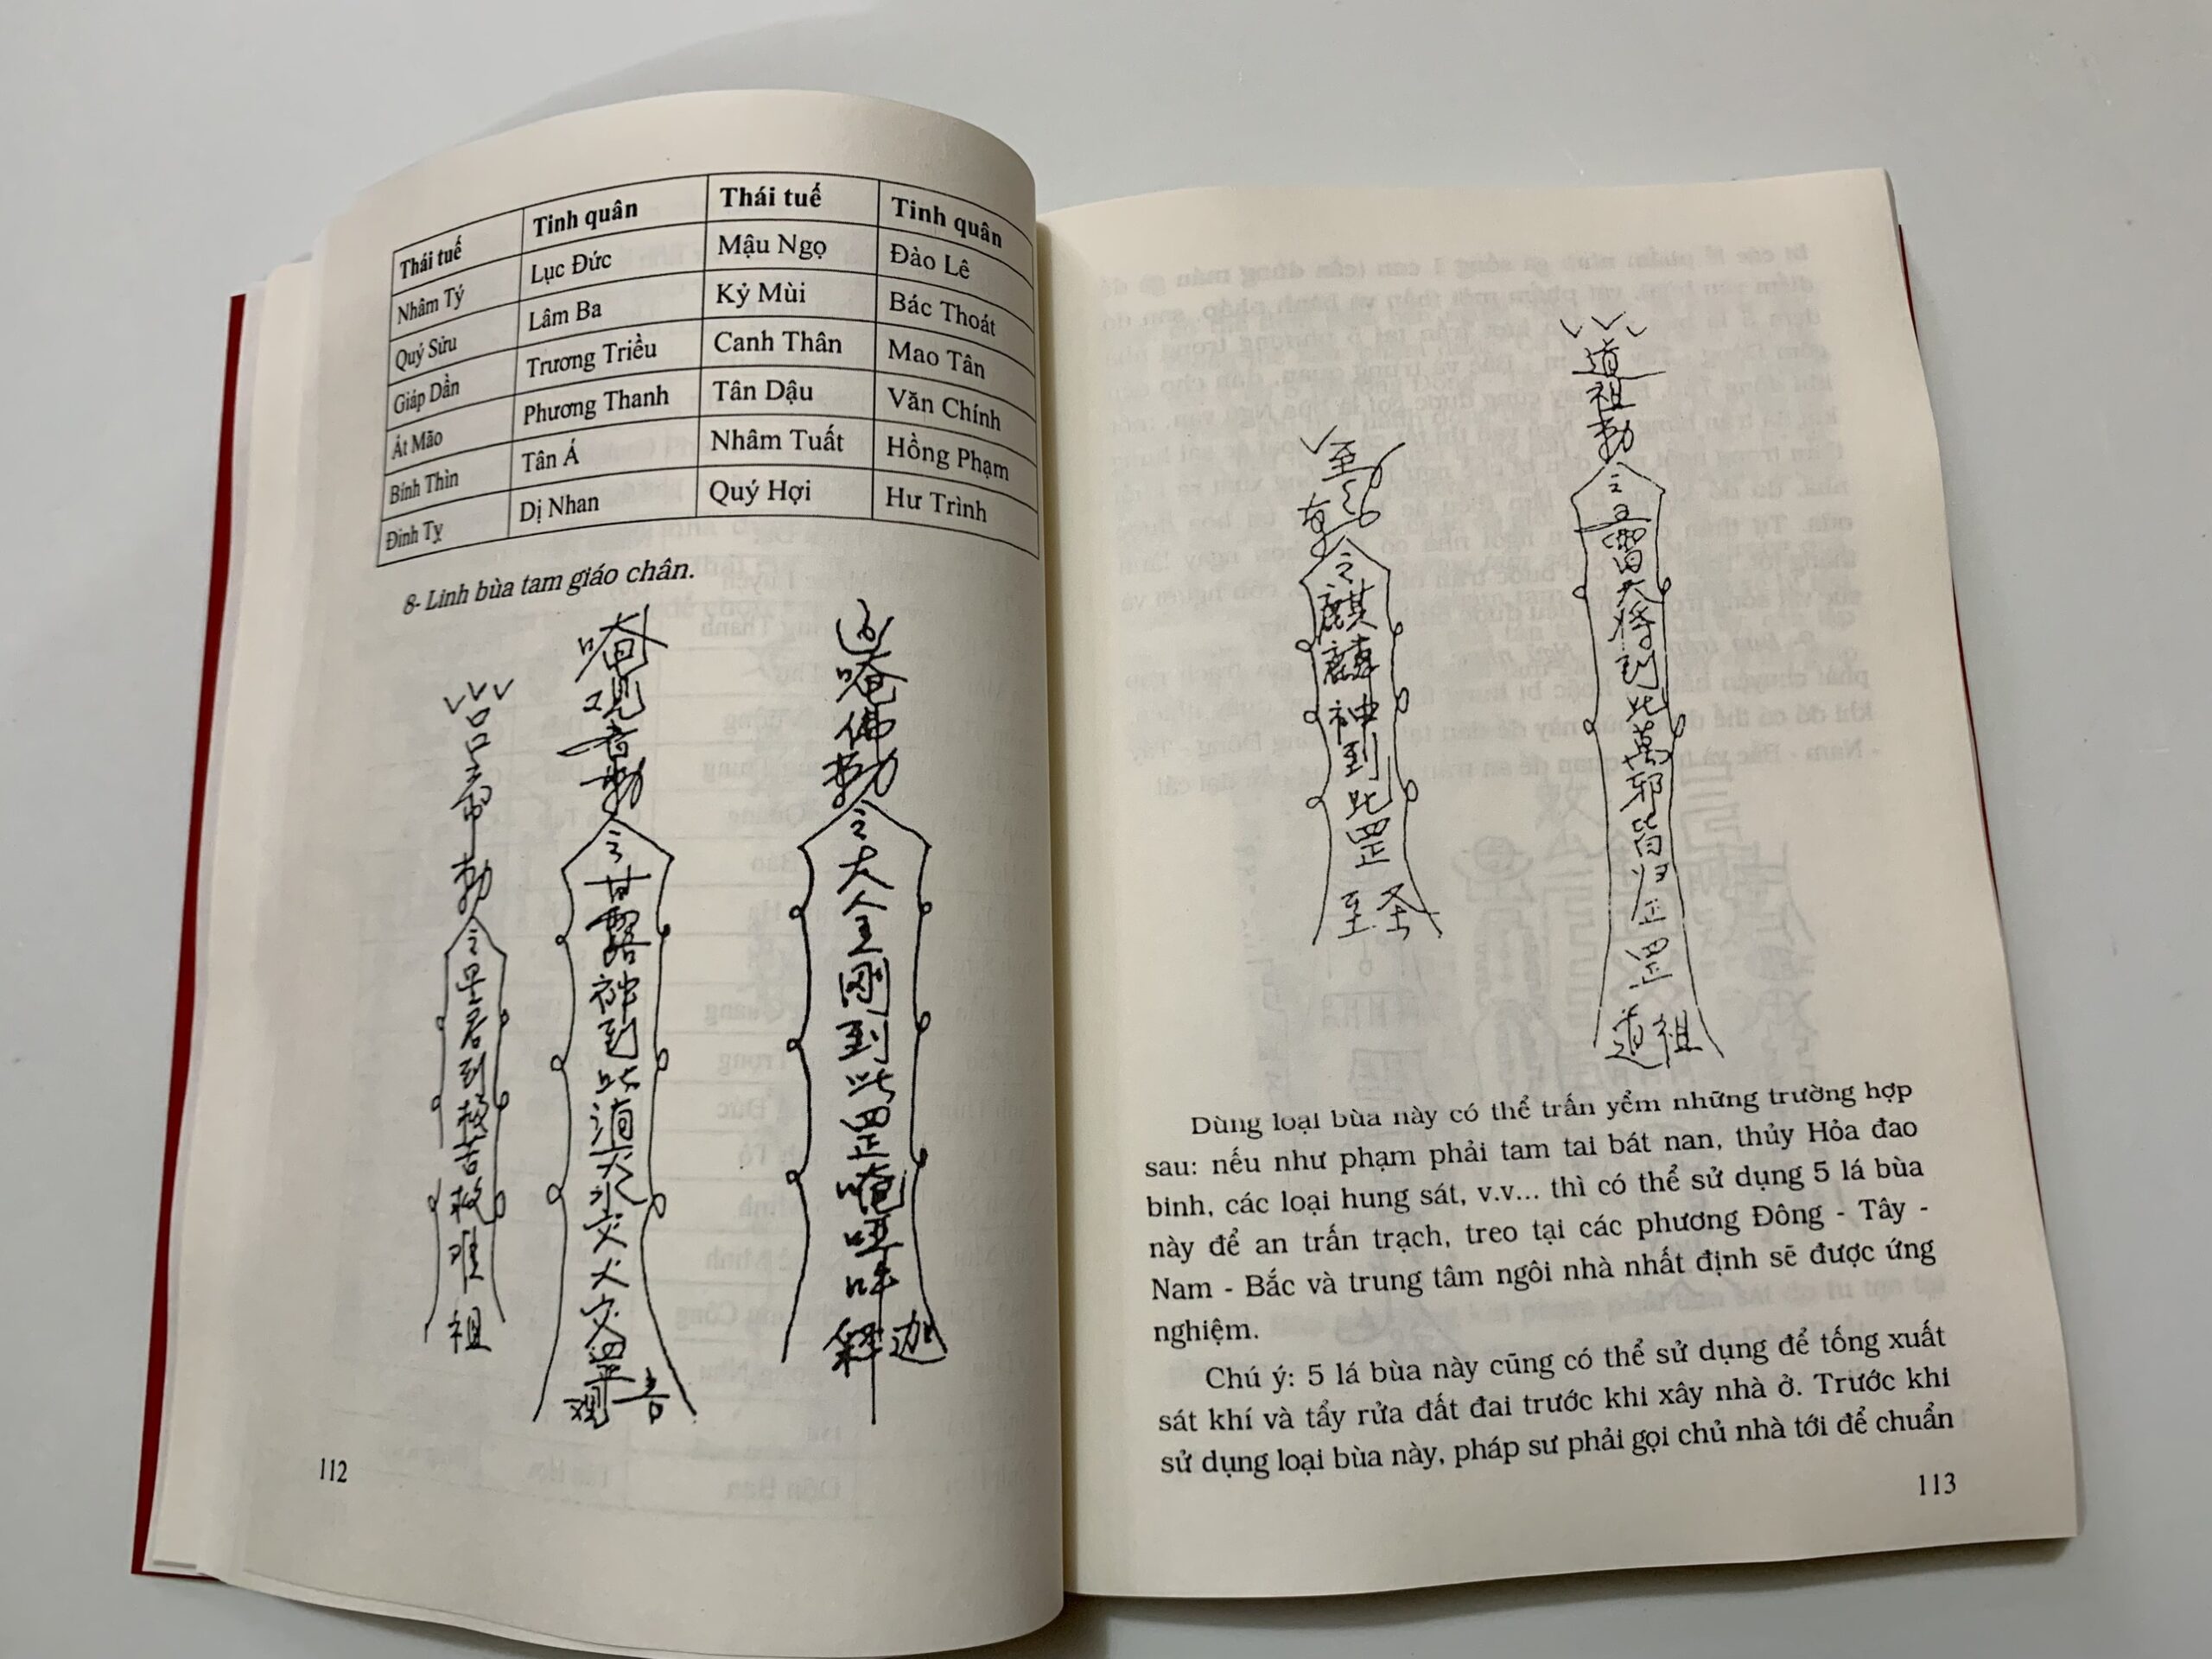 Thái tuế Tinh quân Thái tuế Tinh quân
Nhâm Tý Lục Đức Mậu Ngọ Đào Lê
Quý Sửu Lâm Ba Kỷ Mùi Bác Thoát
Giáp Dần Trương Triều Canh Thân Mao Tân
Ất Mão Phương Thanh Tân Dậu Văn Chính
Bính Thìn Tân Á Nhâm Tuất Hồng Phạm
Đinh Tỵ Dị Nhan Quý Hợi Hư Trình
8- Linh bùa tam giáo chân.
唵佛勅令大金到此罡唵
释迦
唵观音勅令甘露神到此
观音
勅令到救苦救难
祖
112
道祖勅令雷大将到此萬邪皆归正罡
道祖
至
令麒麟神到此罡
至圣
Dùng loại bùa này có thể trấn yểm những trường hợp
sau: nếu như phạm phải tam tai bát nan, thủy Hỏa đao
binh, các loại hung sát, v.v... thì có thể sử dụng 5 lá bùa
này để an trấn trạch, treo tại các phương Đông - Tây -
Nam - Bắc và trung tâm ngôi nhà nhất định sẽ được ứng
nghiệm.
Chú ý: 5 lá bùa này cũng có thể sử dụng để tống xuất
sát khí và tẩy rửa đất đai trước khi xây nhà ở. Trước khi
sử dụng loại bùa này, pháp sư phải gọi chủ nhà tới để chuẩn
113